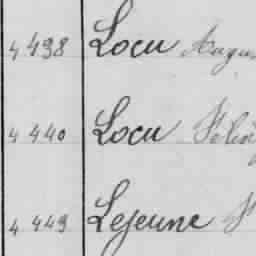 4 438 Locu Augus
4 440 Locu
4 449 Lejeune